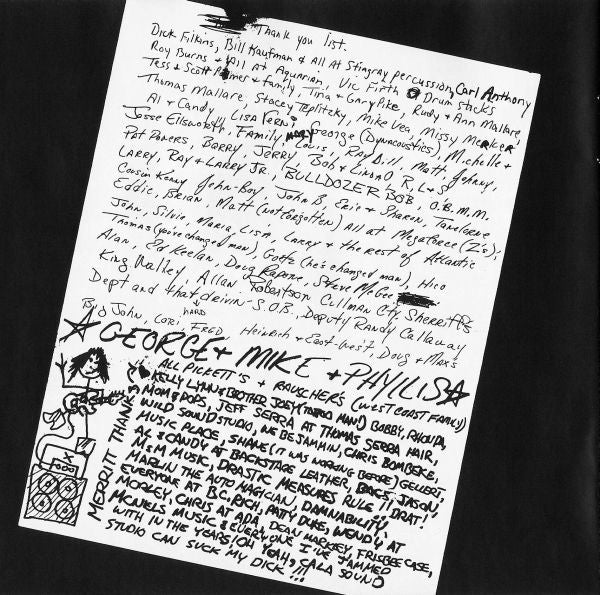 Thank you list.
Dick Filkins, Bill Kaufman & All At Stingray percussion, Carl Anthony
Roy Burns & All at Aquarian, Vic Firth Drum sticks
Tess & Scott Palmer & family, Tina & Gary Pike, Rudy & Ann Mallare,
Thomas Mallare, Stacey Teplitzky, Mike Vea, Missy Merker
Al & Candy, Lisa Ferni, George (Dynacoustics), Michelle &
Jesse Ellsworth, Family, Louis, Ray Dill, Matt, Johnny,
Pat Powers, Barry, Jerry, Bob & Linda O'R, L & S
Larry, Ray & Larry Jr., BULLDOZER BOB, O.B.M.M.
Cousin Kenny, John-Boy, John B, & Sharen,
Eddie, Brian, Matt (not forgotten) All at Megaforce (Z's),
John, Silvio, Maria, Lisa, Larry & the rest of Atlantic
Thomas (you've changed man), Gotti (he's changed man), Hico
Alan, Ed Keelan, Doug Steve McGee
King Nalley, Allan Robertson Cullman Cty. Sherriffs
Dept and that hard drivin S.O.B., Deputy Randy Callaway
John, Lori, Fred Heinrich & East-West, Doug & Max's
GEORGE & MIKE & PHYLLIS
MERRITT THANKS
ALL PICKETT'S & RAUSCHER'S (WEST COAST FAMILY)
KELLY LYNN & BROTHER JOEY (TATOO MAN!) BOBBY, RHONDA,
MOM & POPS, JEFF SERRA AT THOMAS SERRA HAIR,
WILD SOUND STUDIO, WE BE JAMMIN, CHRIS BOMBEKE,
MUSIC PLACE, SHANE (IT WAS WORKING BEFORE) GELLERT,
AL & CANDY AT BACKSTAGE LEATHER, BAKS, JASON,
M & M MUSIC, DRASTIC MEASURES RULE!! DRAT!
MARLIN THE AUTO MAGICIAN, DAMNABILITY,
EVERYONE AT B.C. RICH, PATY DUKE, WENDY AT
MORLEY, CHRIS AT ADA, DEAN MARKLEY, FRISBEE CASE,
McNEILS MUSIC & EVERYONE I'VE JAMMED
WITH IN THE YEARS (OH YEAH, CALA SOUND
STUDIO CAN SUCK MY DICK!!!